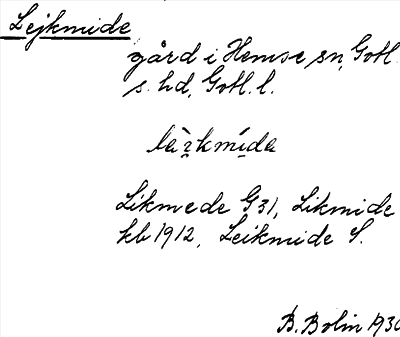 Lejkmide
gård i Hemse sn, Gotl.
s. hd, Gotl. l.
Likmede G31, Likmide
kb 1912, Leikmide S.
B. Bolin 1930